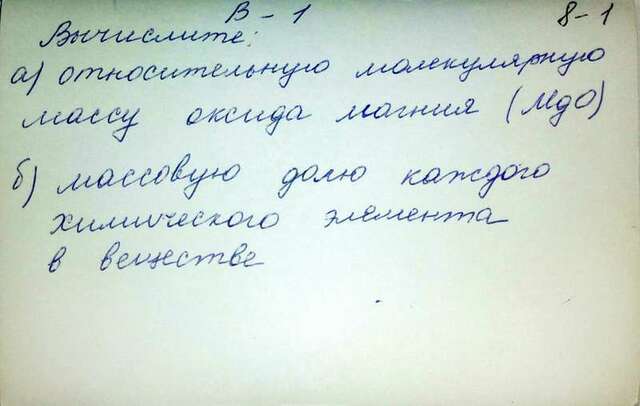 В - 1
8-1
Вычислите:
а) относительную молекулярную
массу оксида магния (MgO)
б) массовую долю каждого
химического элемента
в веществе